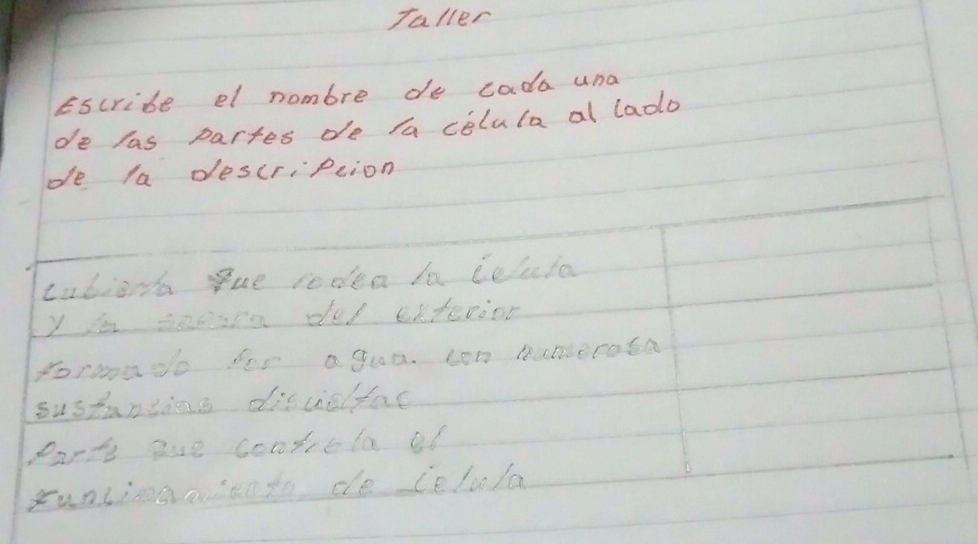 Taller
Escribe el nombre de cada una
de las partes de la célula al lado
de la descripcion
cubierta que rodea la celula
y la separa del exterior
formado por agua con numerosa
sustansias disueltas
Parte que controla el
funcionamiento de celula